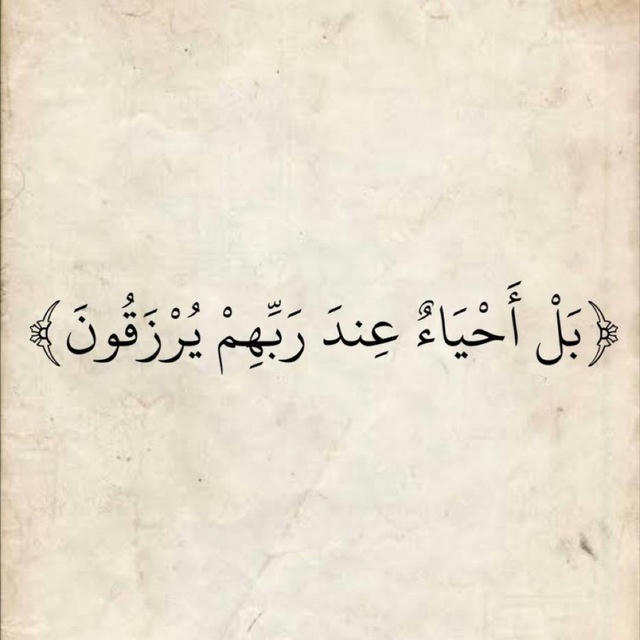 ﴿بَلْ أَحْيَاءٌ عِندَ رَبِّهِمْ يُرْزَقُونَ﴾